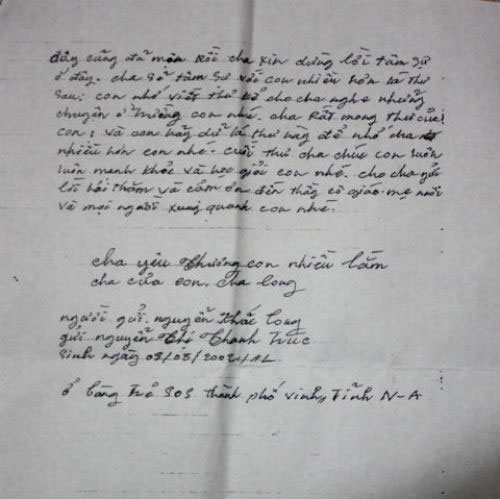 đây cũng đã muộn rồi cha xin dừng lời tâm sự
ở đây. cha sẽ tâm sự với con nhiều hơn lá thư
sau; con nhớ viết thư kể cho cha nghe những
chuyện ở miềng con nhé. cha rất mong thư của
con; và con hãy dữ lá thư này để nhớ cha
nhiều hơn con nhé. cuối thư cha chúc con luôn
luôn mạnh khỏe và học giỏi con nhé. cho cha gửi
lời hỏi thăm và cảm ơn đến thầy cô giáo. mẹ nuôi
và mọi người xung quanh con nhé.
cha yêu thương con nhiều lắm
cha của con. cha long
người gửi. nguyễn khắc long
gửi nguyễn thị thanh trúc
sinh ngày 08/08/2002/AL
ở làng trẻ SOS thành phố vinh, Tỉnh N-A